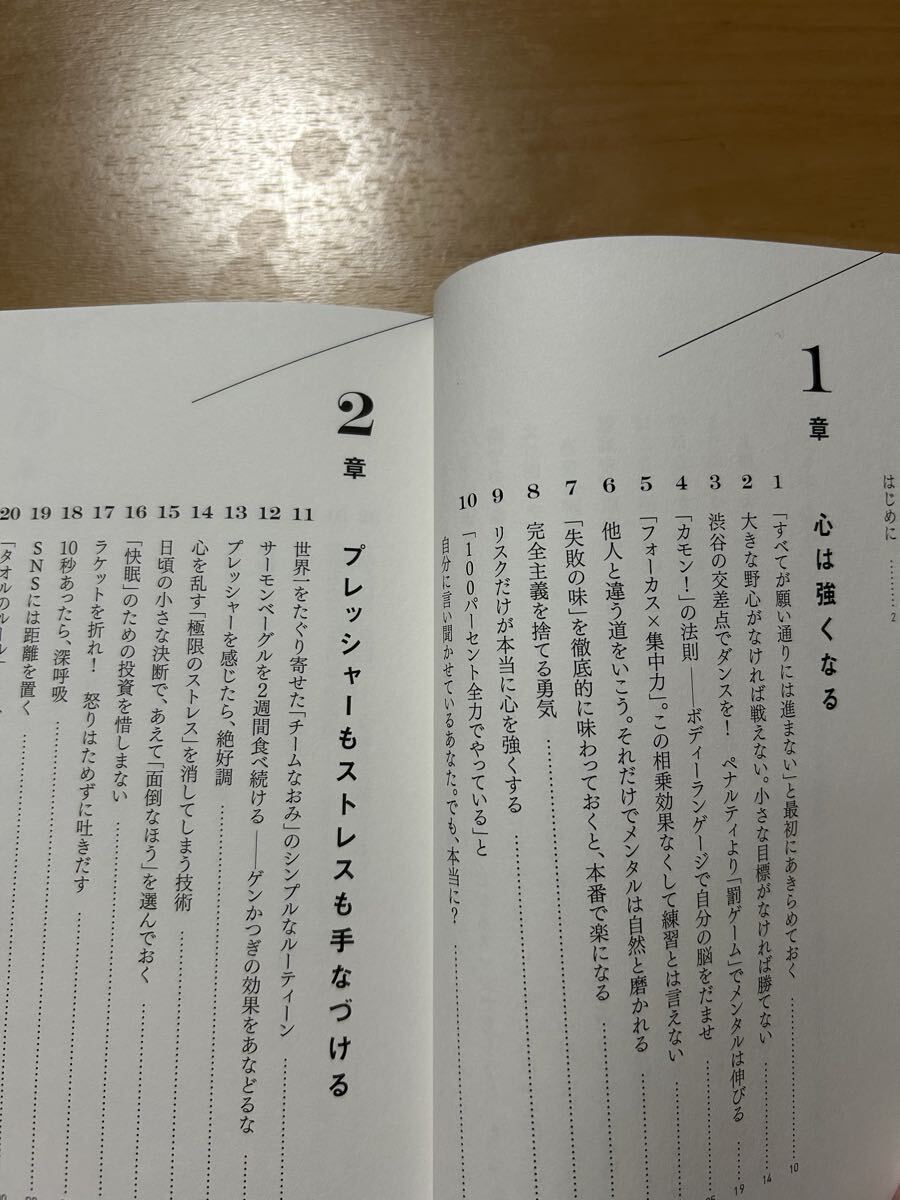 はじめに………2
1章 心は強くなる
1 「すべてが願い通りには進まない」と最初にあきらめておく………10
2 大きな野心がなければ戦えない。小さな目標がなければ勝てない………14
3 渋谷の交差点でダンスを！ ペナルティより「罰ゲーム」でメンタルは伸びる………19
4 「カモン！」の法則――ボディーランゲージで自分の脳をだませ………25
5 「フォーカス×集中力」。この相乗効果なくして練習とは言えない………
6 他人と違う道をいこう。それだけでメンタルは自然と磨かれる………
7 「失敗の味」を徹底的に味わっておくと、本番で楽になる………
8 完全主義を捨てる勇気………
9 リスクだけが本当に心を強くする………
10 「100パーセント全力でやっている」と
自分に言い聞かせているあなた。でも、本当に？………
2章 プレッシャーもストレスも手なづける
11 世界一をたぐり寄せた「チームなおみ」のシンプルなルーティーン………
12 サーモンベーグルを2週間食べ続ける――ゲンかつぎの効果をあなどるな………
13 プレッシャーを感じたら、絶好調………
14 心を乱す「極限のストレス」を消してしまう技術………
15 日頃の小さな決断で、あえて「面倒なほう」を選んでおく………
16 「快眠」のための投資を惜しまない………
17 ラケットを折れ！ 怒りはためずに吐きだす………
18 10秒あったら、深呼吸………
19 SNSには距離を置く………
20 「タオルのルール」